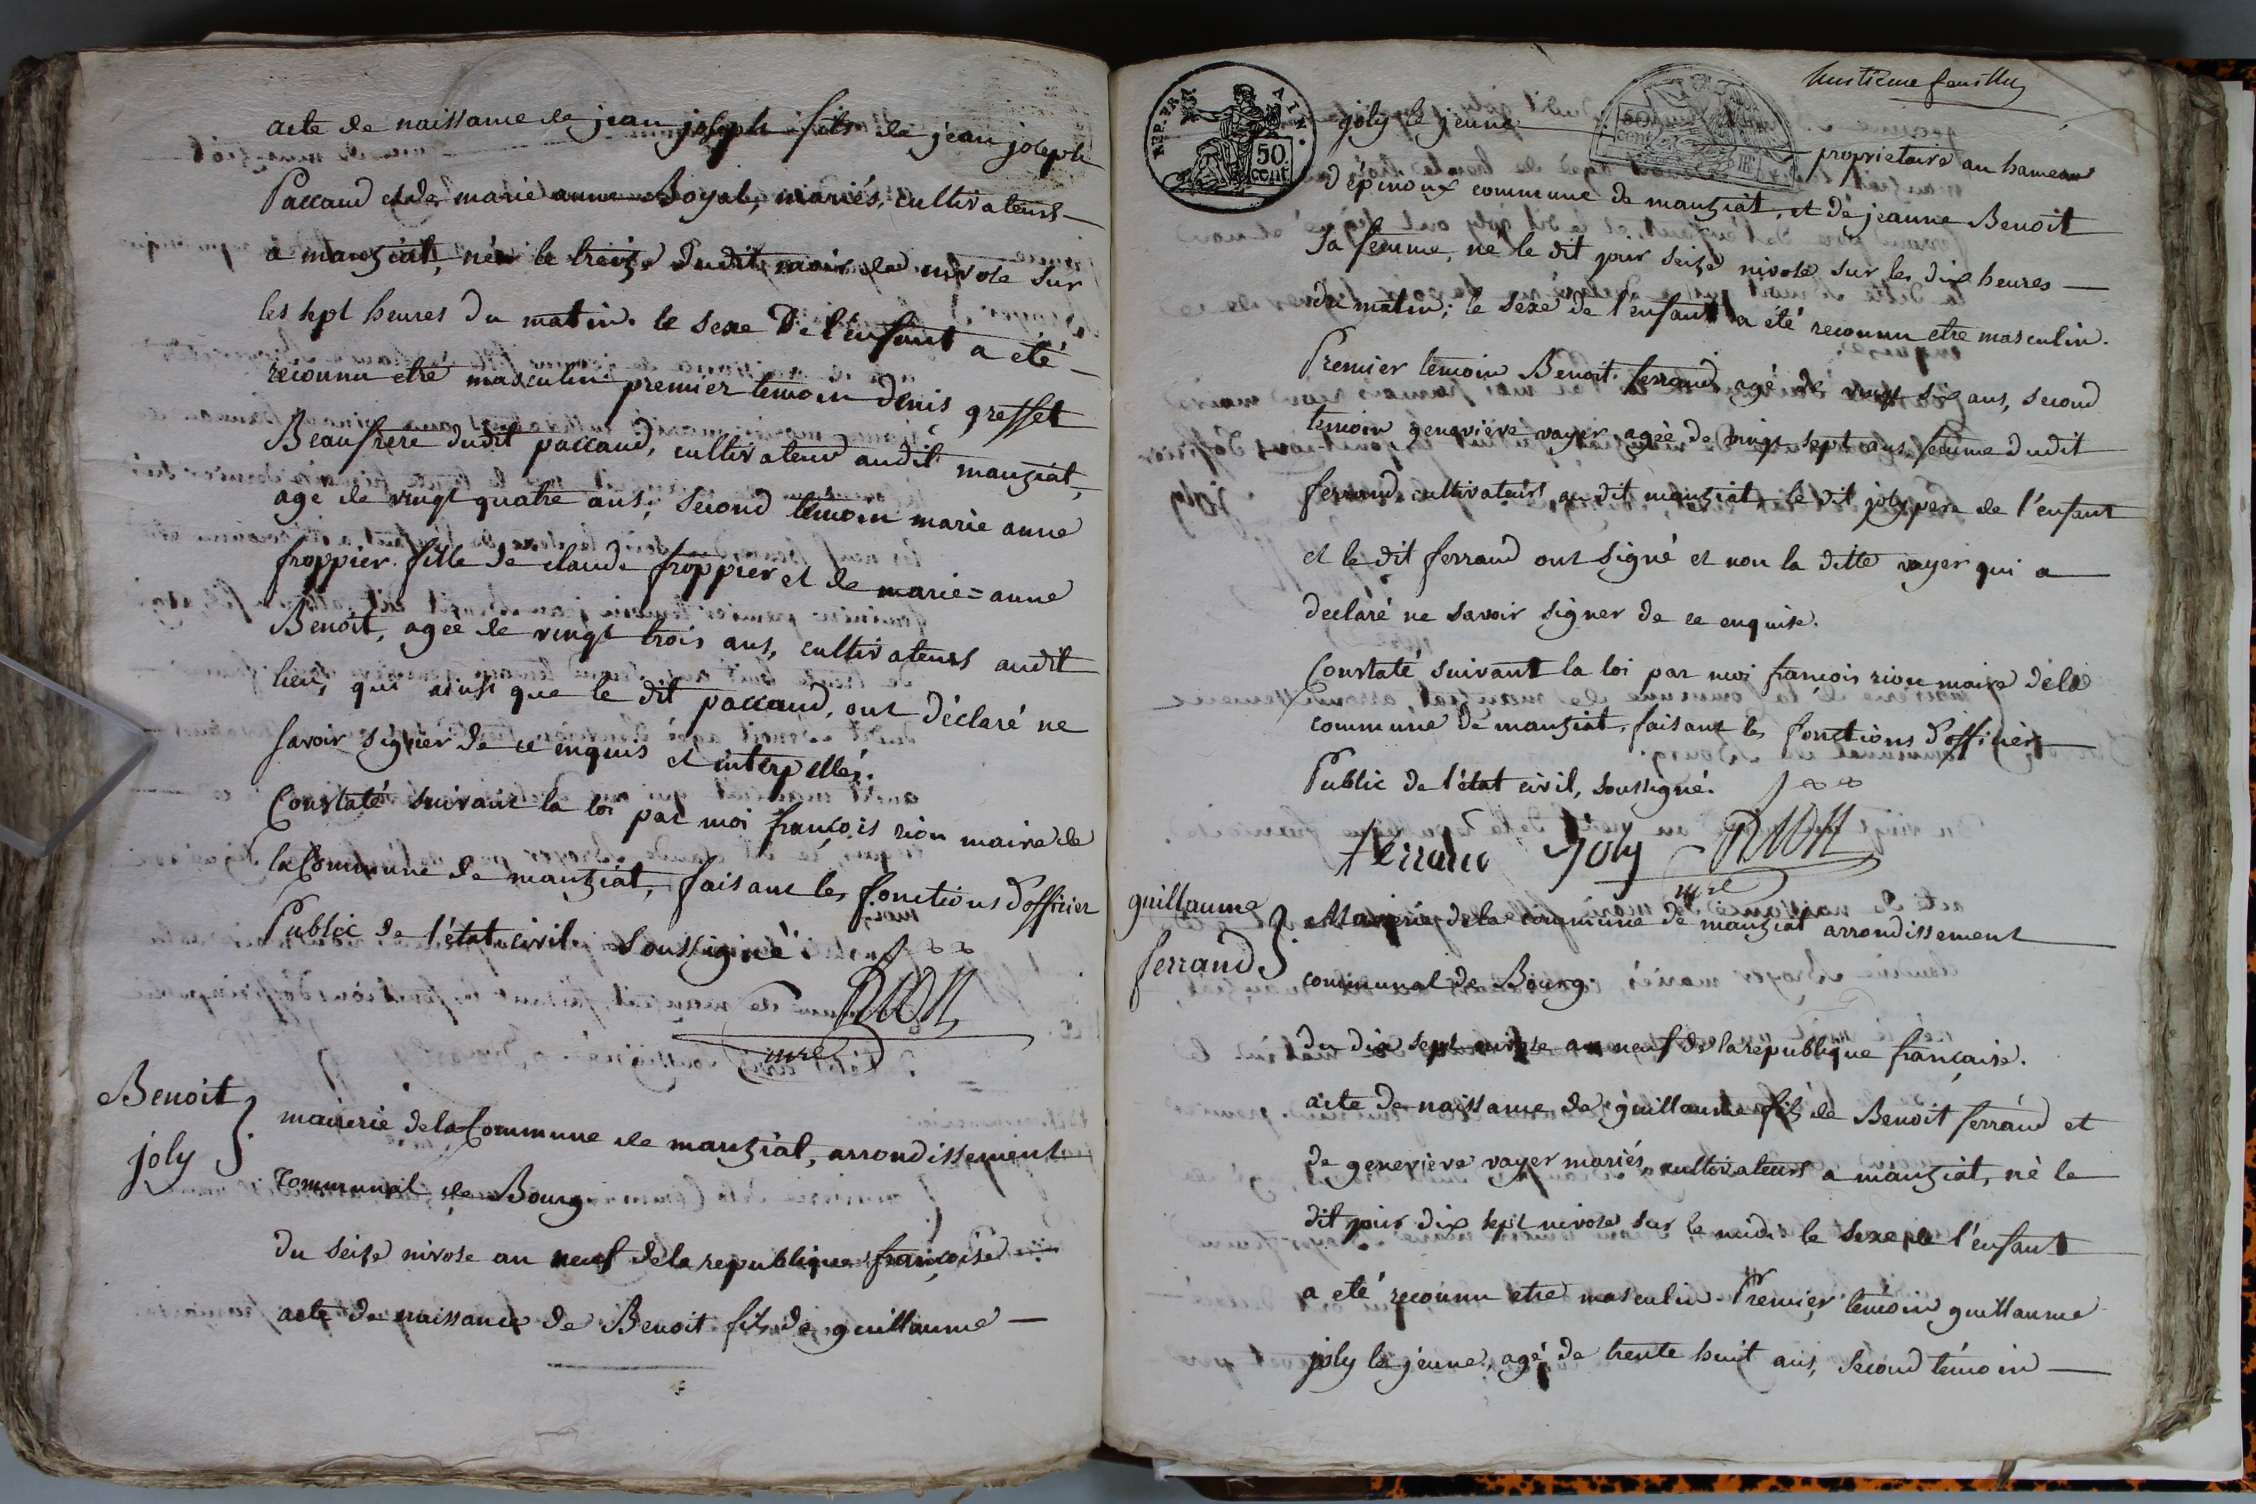 acte de naissance de jean joseph fils de jean joseph
Paccaud et de marie anne Boyat, mariés, cultivateurs
a manziat, né le treize dudit mois de nivose sur
les sept heures du matin. le sexe de l'enfant a été
reconnu etre masculin premier temoin denis gresset
Beaufrere dudit paccaud, cultivateur audit manziat,
agé de vingt quatre ans; second témoin marie anne
froppier fille de claude froppier et de marie=anne
Benoit, agée de vingt trois ans, cultivateurs audit
lieu, qui ainsi que le dit paccaud, ont déclaré ne
savoir signer de ce enquis et interpellés.
Constaté suivant la loi par moi françois rion maire de
la Commune de manziat, faisant les fonctions d'officier
Public de l'état civil soussigné.
RION
mre
Benoit
joly
mairerie de la Commune de manziat, arrondissement
Communal de Bourg
du seize nivose an neuf de la republique françoise
acte de naissance de Benoit fils de guillaume
huitieme feuillet
REP. FRA
50.
cent
joly le jeune proprietaire au hameau
d'épinoux commune de manziat, et de jeanne Benoit
sa femme, né le dit jour seize nivose sur les dix heures
du matin; le sexe de l'enfant a été reconnu etre masculin.
Premier temoin Benoit ferrand agé de vingt six ans, second
temoin genevieve vayer agée de vingt sept ans femme dudit
ferrand, cultivateurs au dit manziat le dit joly pere de l'enfant
et le dit ferrand ont signé et non la ditte vayer qui a
declaré ne savoir signer de ce enquise.
Constaté suivant la loi par moi françois rion maire de la
commune de manziat, faisant les fonctions d'officier
Public de l'état civil, soussigné.
ferrand joly RION
mre
guillaume
ferrand
Mairerie de la commune de manziat arrondissement
communal de Bourg
du dix sept nivose an neuf de la republique française.
acte de naissance de guillaume fils de Benoit ferrand et
de genevieve vayer mariés, cultivateurs a manziat, né le
dit jour dix sept nivose sur le midi le sexe de l'enfant
a eté reconnu etre masculin Premier témoin guillaume
joly le jeune, agé de trente huit ans, second témoin